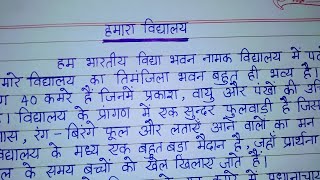 हमारा विद्यालय
हम भारतीय विद्या भवन नामक विद्यालय में
मारे विद्यालय का तिमंजिला भवन बहुत ही भव्य है।
40 कमरे हैं जिनमें प्रकाश, वायु और पंखों की
। विद्यालय के प्रांगण में एक सुन्दर फुलवाड़ी है जिस
रंग-बिरंगे फूल और लताएँ आने वालों का मन
विद्यालय के मध्य एक बहुत बड़ा मैदान है, जहाँ प्रार्थना
के समय बच्चों को खेल खिलाए जाते हैं।